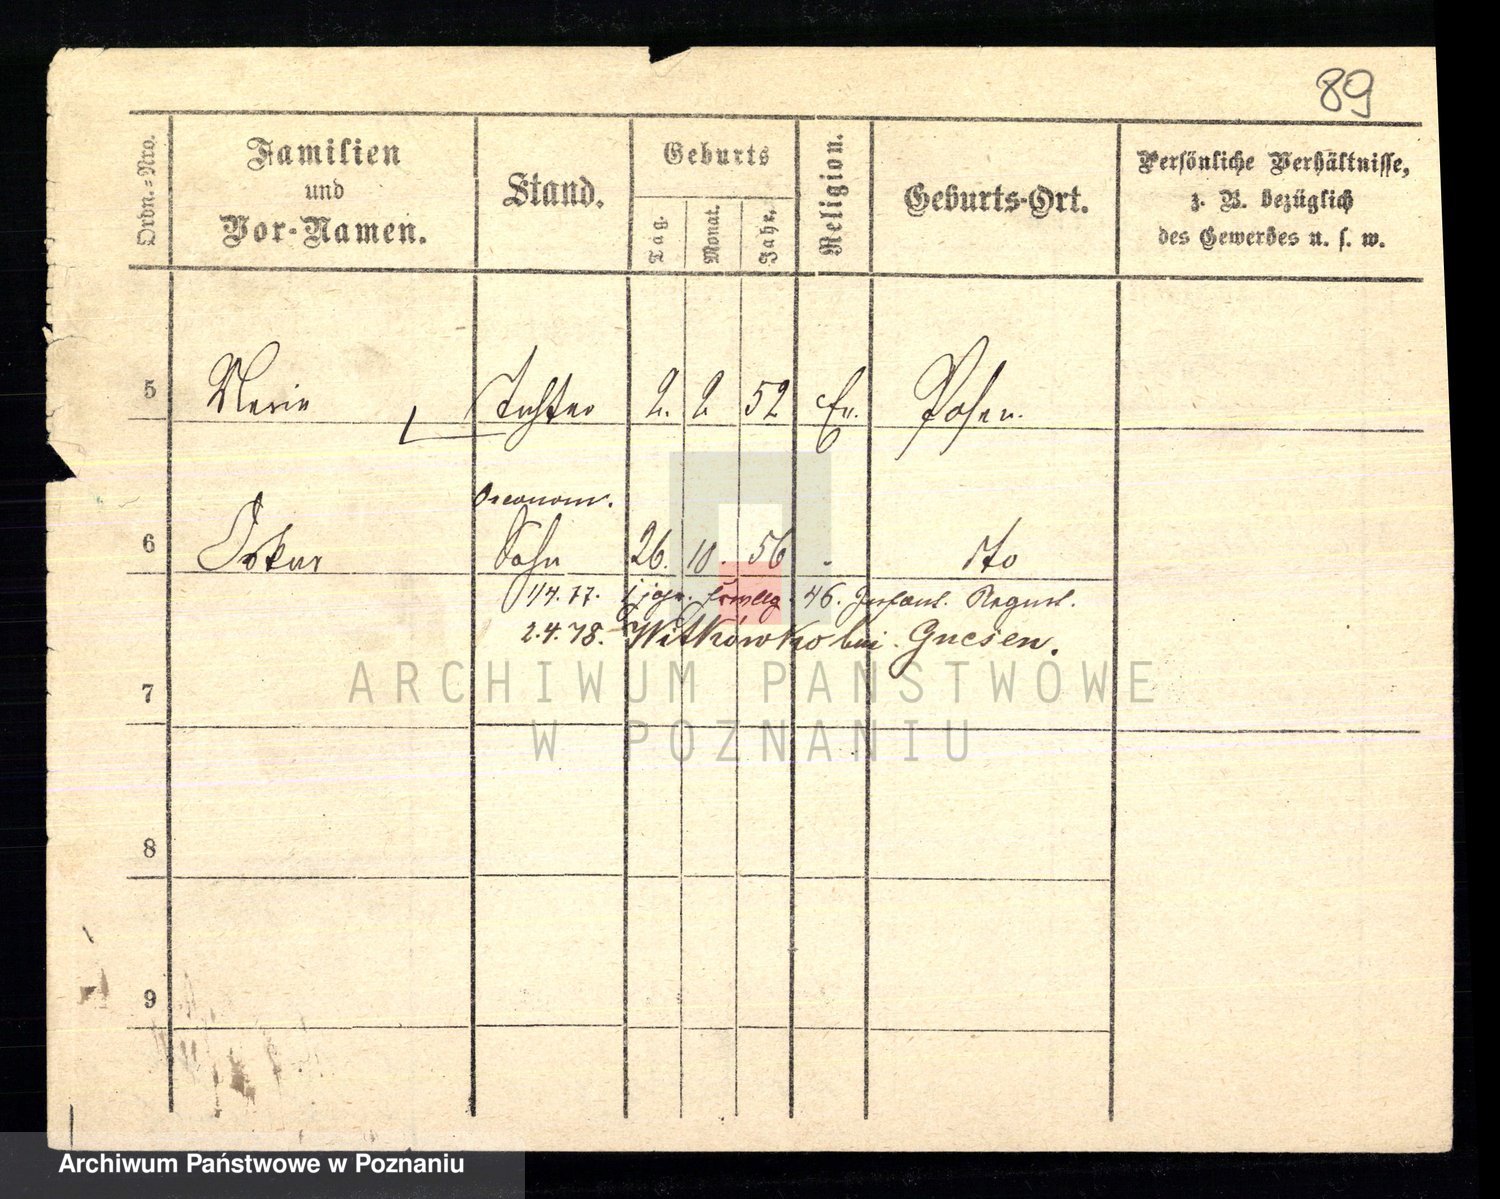 89
Ordn.-Nro.
Familien
und
Vor-Namen.
Stand.
Geburts
Tag.
Monat.
Jahr.
Religion.
Geburts-Ort.
Persönliche Verhältnisse,
z. B. bezüglich
des Gewerbes u. s. w.
5 Marie Tochter 2. 2 52 Ev. Posen.
Oeconom.
6 Oskar Sohn 26. 10. 56 dto
1/4. 77. 1 jähr. Freiwillg. 46. Infant. Regmt.
2.4.78. Witkowko bei Gnesen.
7
ARCHIWUM PAŃSTWOWE
W POZNANIU
8
9
Archiwum Państwowe w Poznaniu